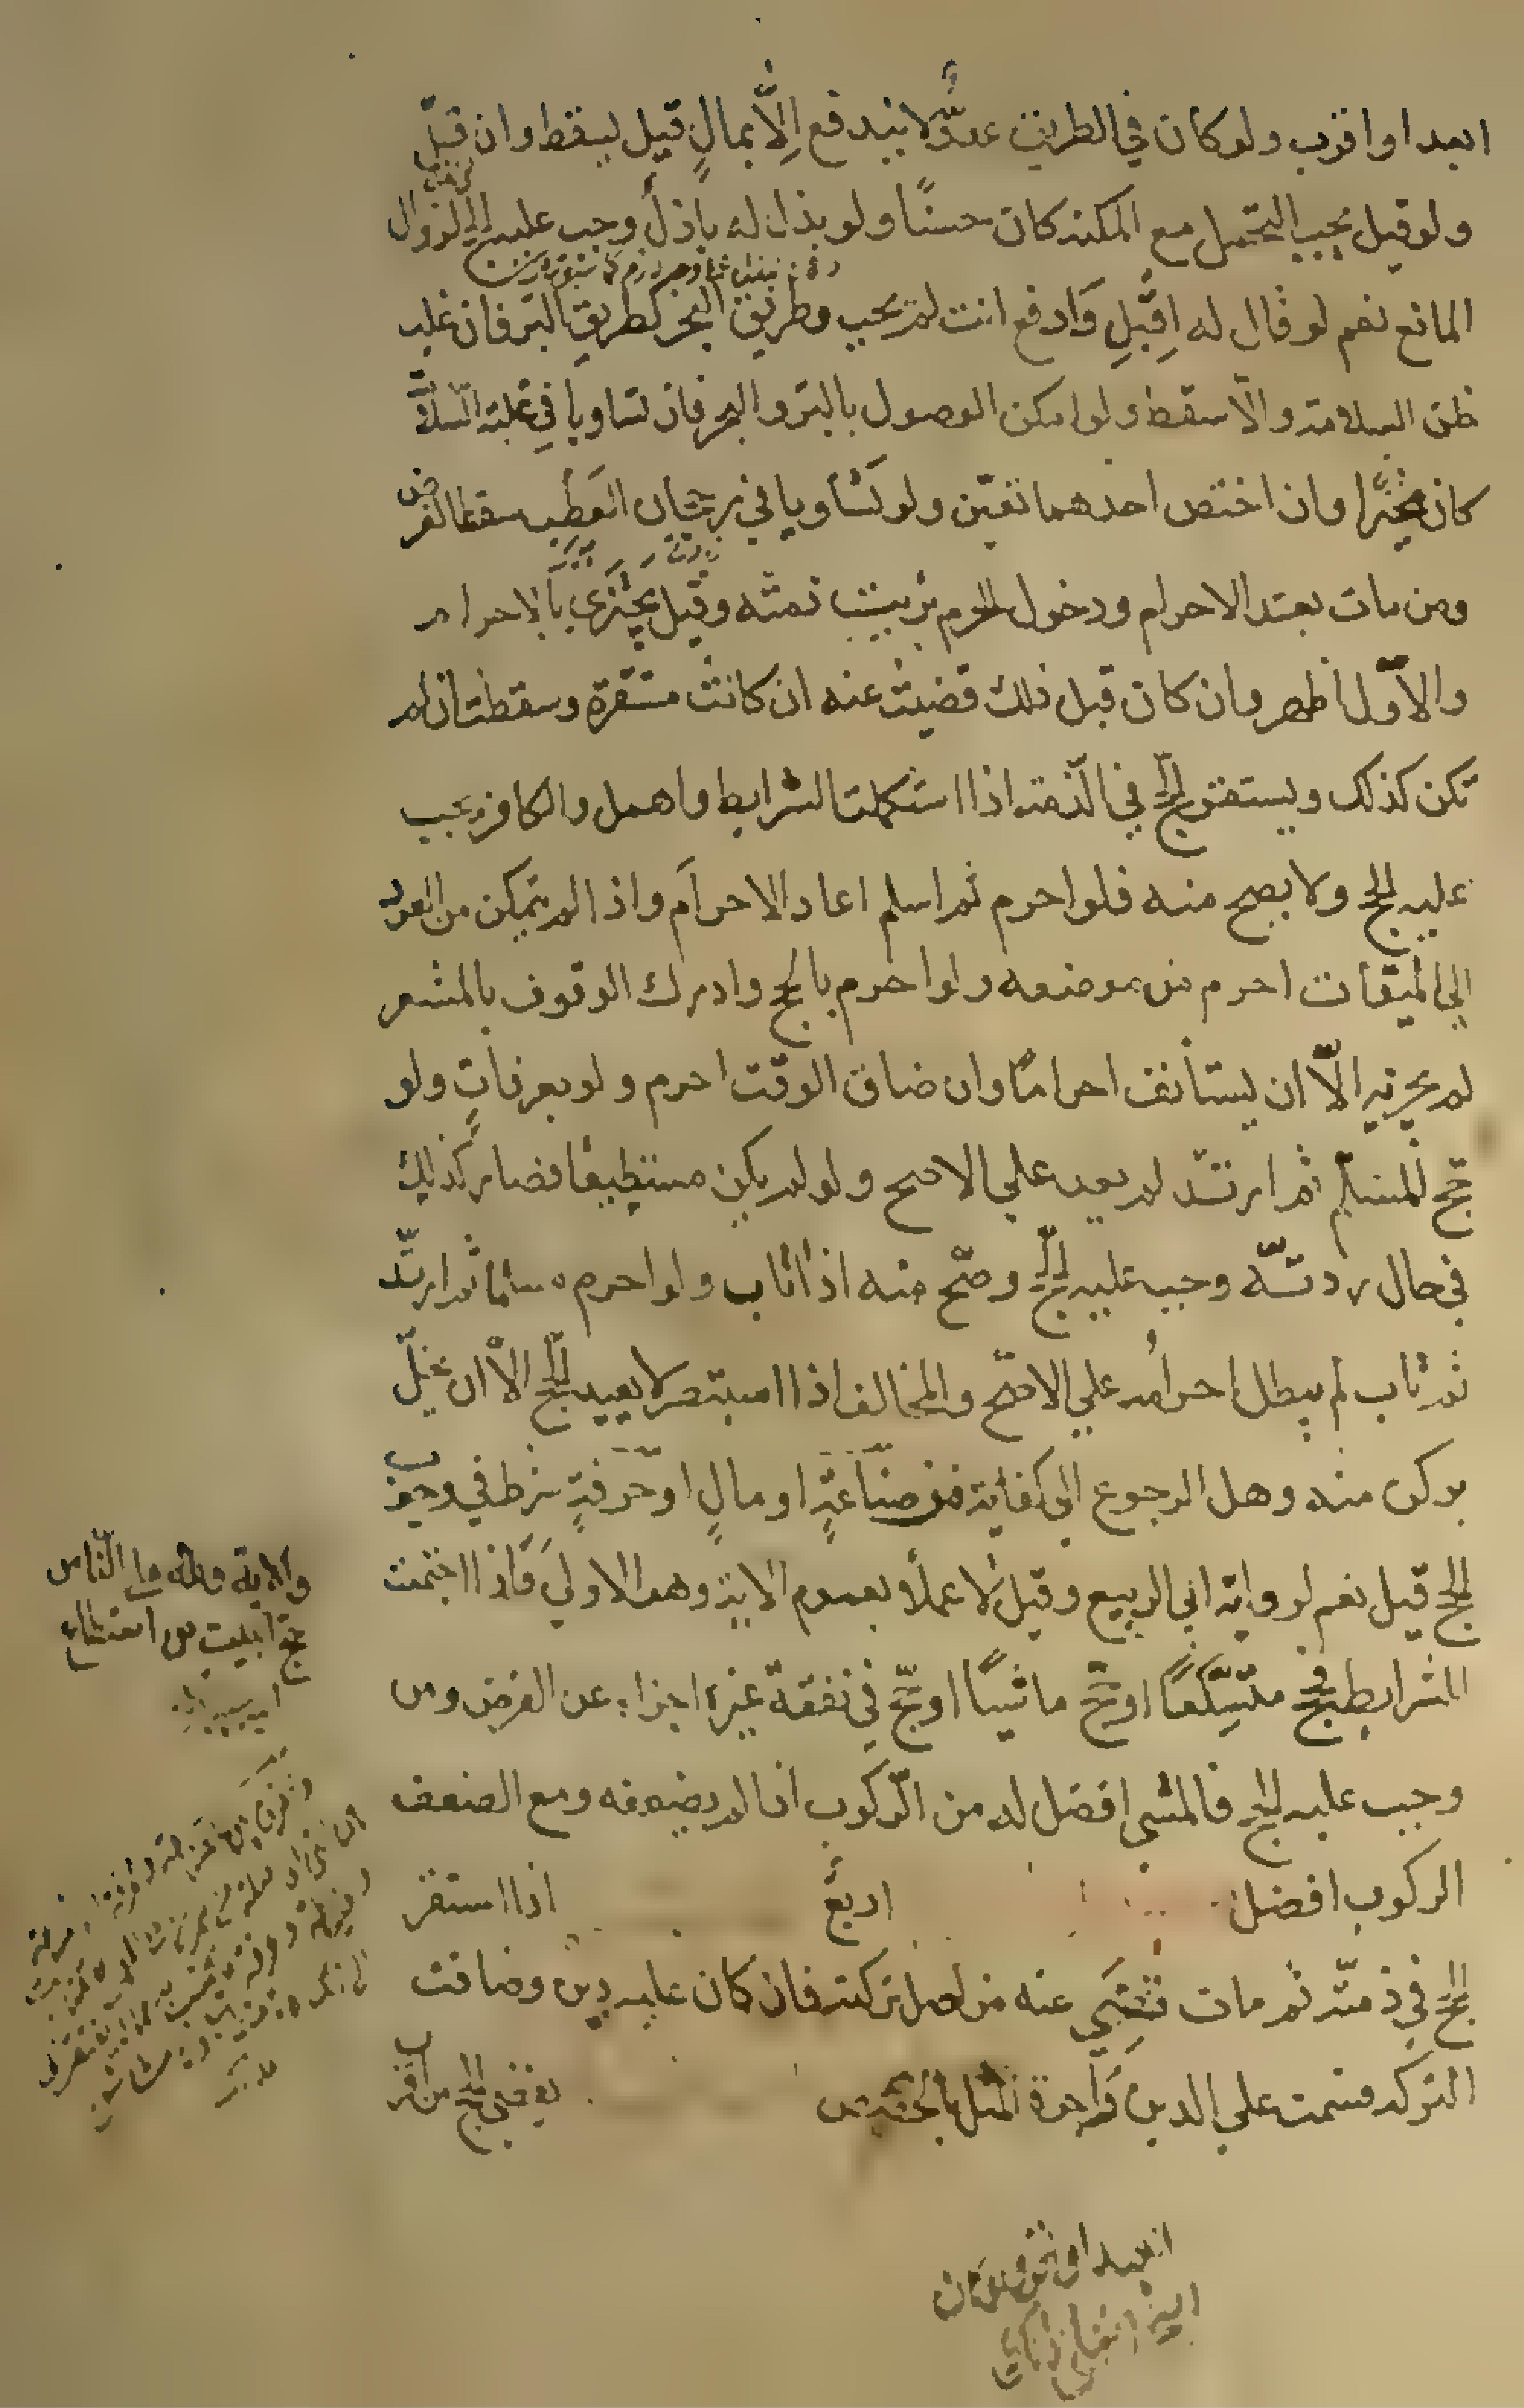 ابعد او اقرب ولو كان في الطريق عدوٌّ لا يندفع إلّا بمالٍ قيل يسقط وان قلّ
ولو قيل يجب التحمل مع المكنة كان حسنًا ولو بذل له باذلٌ وجب عليه الحج لزوال
المانع نعم لو قال له اِقبَلِ وَادفع انت لم يجب وطريق البحر كطريق البرّ فان غلب
ظن السلامة والّا سقط ولو امكن الوصول بالبرّ والبحر فان تساويا في غلبة السلامة
كان مخيّرًا وان اختص احدهما تعيّن ولو تساويا في رجحان العَطَب سقط الفرض
ومن مات بعد الاحرام ودخول الحرم برئت ذمته وقيل يجتزي بالاحرام
والاوّل اظهر وان كان قبل ذلك قضيت عنه ان كانت مستقرة وسقطت ان لم
تكن كذلك ويستقر الحج في الذّمة اذا استكملت الشرايط واهمل والكافر يجب
عليه الحج ولا يصح منه فلو احرم ثم اسلم اعاد الاحرام واذا لم يتمكن من العود
الي الميقات احرم من موضعه ولو احرم بالحج وادرك الوقوف بالمشعر
لم يجزيه الّا ان يستأنف احرامًا وان ضاق الوقت احرم ولو بعرفاتٍ ولو
حجّ المسلم ثم ارتدّ لم يعد علي الاصح ولو لم يكن مستطيعًا فصار كذلك
في حال ردّته وجب عليه الحج وصحّ منه اذا تاب ولو احرم مسلما ثم ارتدّ
ثم تاب لم يبطل احرامُه علي الاصحّ والمخالف اذا استبصر لا يعيد الحج الّا ان يخلّ
بركن منه وهل الرجوع الى كفاية من صناعةٍ او مالٍ او حرفةٍ شرط في وجوب
الحج قيل نعم لرواية ابي الربيع وقيل لا عملًا بعموم الاية وهو الاولي فاذا اجتمعت
الشرايط فحج متسكّعًا او حجّ ماشيًا او حجّ في نفقة غيره اجزاه عن الفرض ومن
وجب عليه الحج فالمشي افضل له من الرّكوب اذا لم يضعفه ومع الضعف
الركوب افضل اربع اذا استقر
الحج في ذمته ثم مات قضي عنه من اصل تركته فان كان عليه دين وضاقت
التركه قسمت علي الدين واجرة المثل بالحصص يقضي الحج من اقرب
والاية ولله على النّاس
حجّ البيت من استطاع
اليه سبيلا